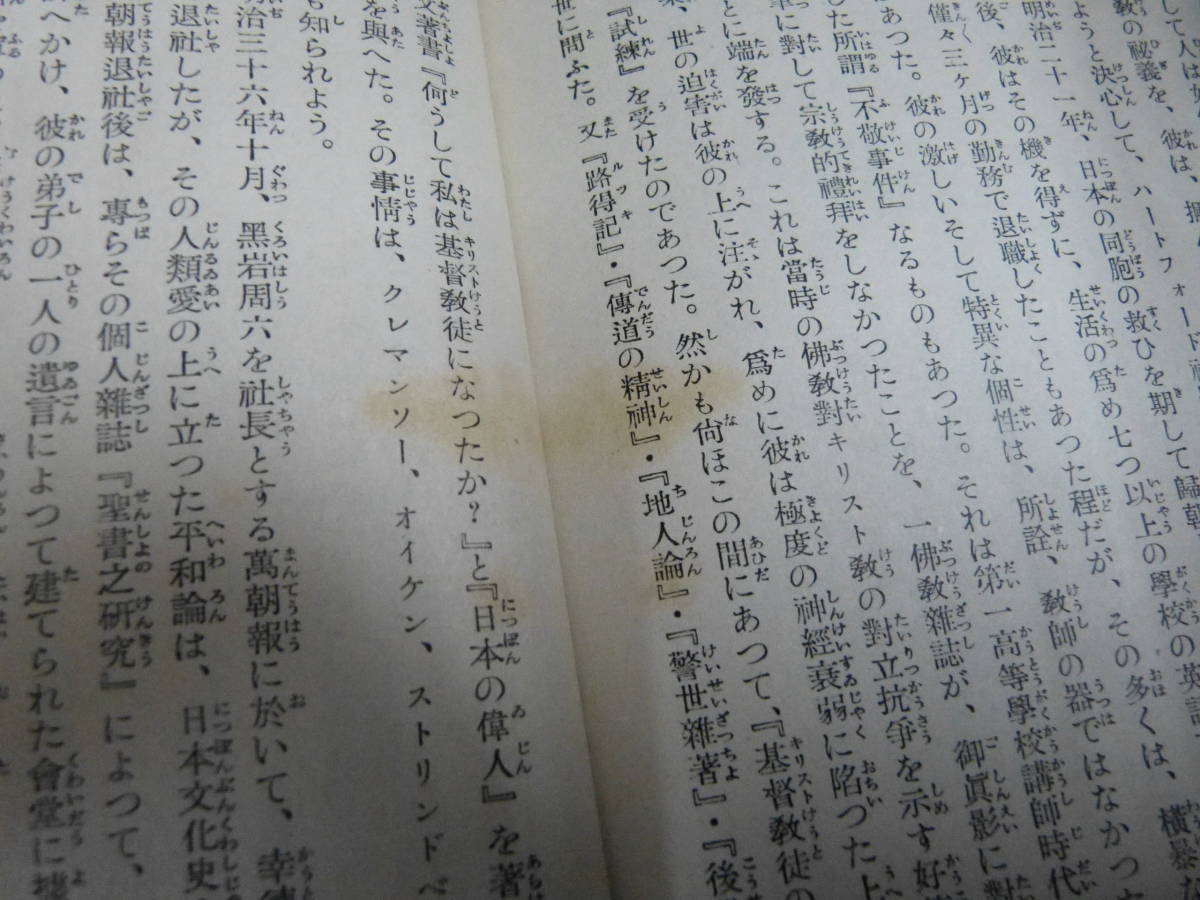 して人は
教の秘義を、彼は、
ようと決心して、ハートフォード
明治二十一年、日本の同胞の救ひを期して歸朝
後、彼はその機を得ずに、生活の爲め七つ以上の學校の英語
僅々三ヶ月の勤務で退職したこともあつた程だが、その多くは、横暴な
あつた。彼の激しいそして特異な個性は、所詮、敎師の器ではなかつた
た所謂『不敬事件』なるものもあつた。それは第一高等學校講師時代
に對して宗敎的禮拜をしなかつたことを、一佛敎雜誌が、御眞影に對
とに端を發する。これは當時の佛敎對キリスト敎の對立抗爭を示す好
、世の迫害は彼の上に注がれ、爲めに彼は極度の神經衰弱に陷つた上
『試練』を受けたのであつた。然かも尙ほこの間にあつて、『基督敎徒の
世に問ふた。又『路得記』・『傳道の精神』・『地人論』・『警世雜著』・『後
文著書『何うして私は基督敎徒になつたか？』と『日本の偉人』を著
を與へた。その事情は、クレマンソー、オイケン、ストリンドベ
も知られよう。
治三十六年十月、黑岩周六を社長とする萬朝報に於いて、幸德
退社したが、その人類愛の上に立つた平和論は、日本文化史
朝報退社後は、專らその個人雜誌『聖書之研究』によつて、
へかけ、彼の弟子の一人の遺言によつて建てられた會堂に